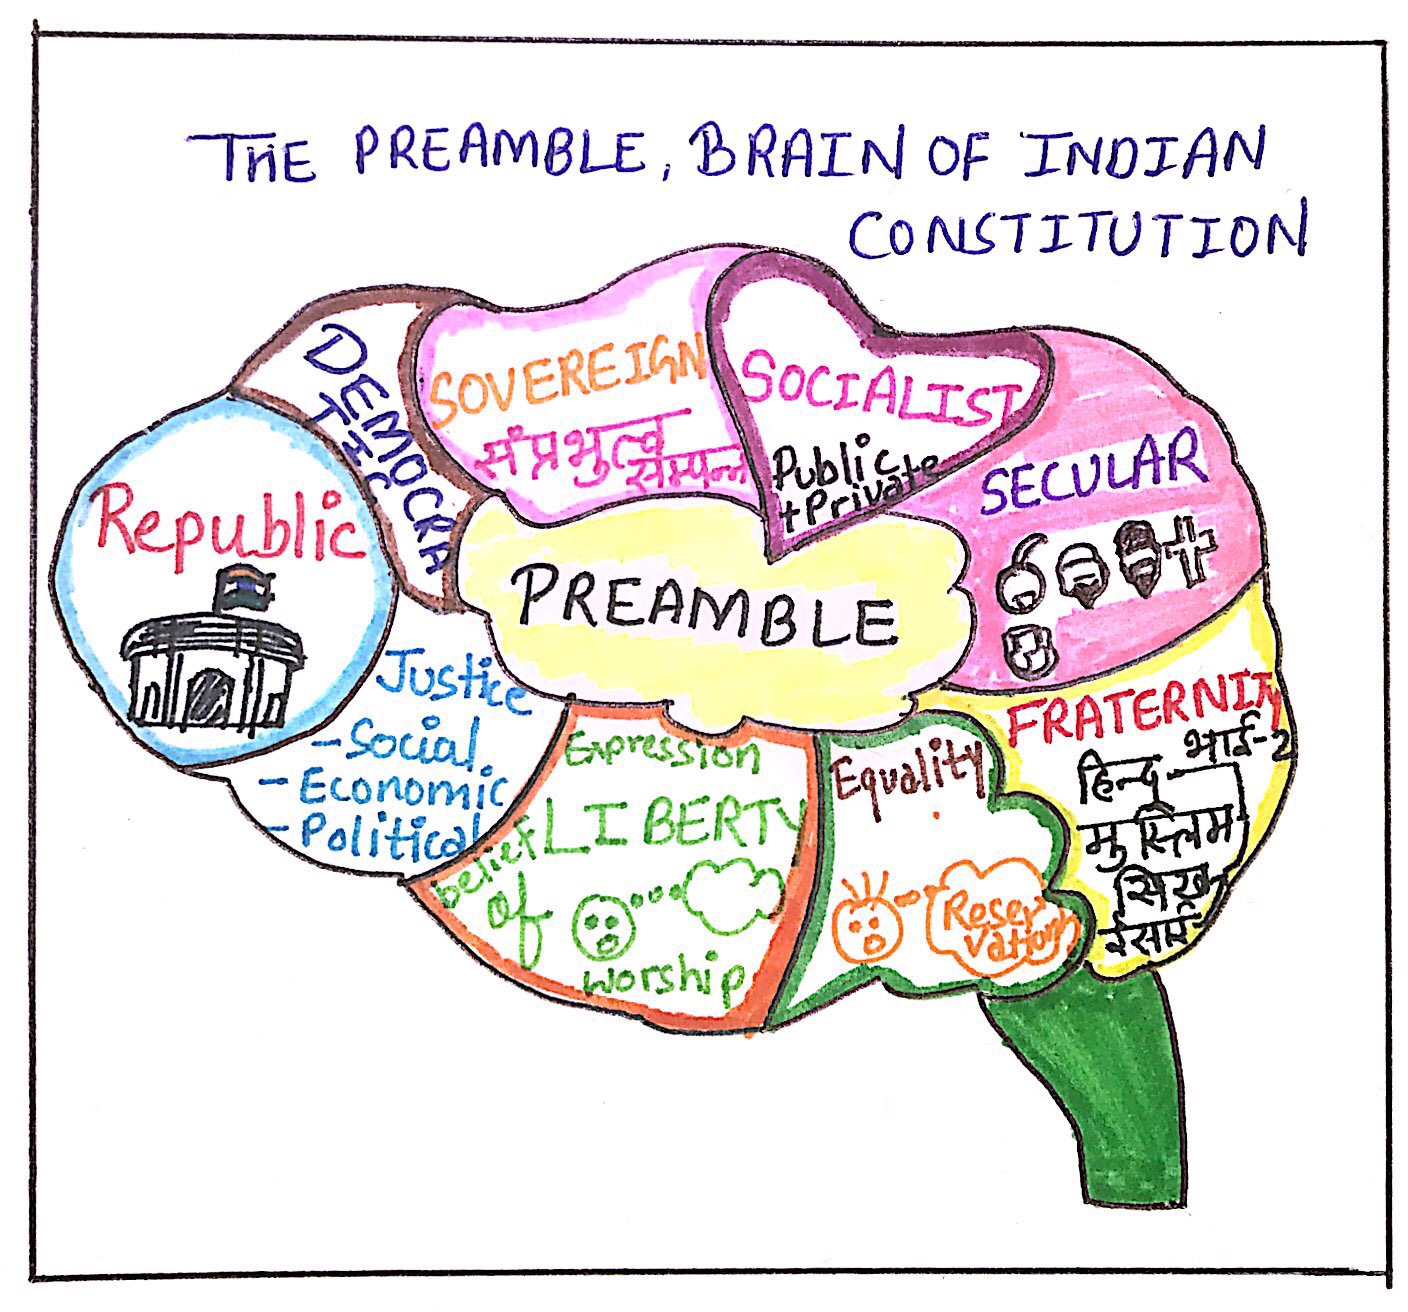 THE PREAMBLE, BRAIN OF INDIAN
CONSTITUTION
DEMOCRA
TIC
SOVEREIGN
संप्रभुत्व
सम्पन्न
SOCIALIST
Public
+Private
SECULAR
Republic
PREAMBLE
Justice
-Social
- Economic
- Political
Expression
LIBERTY
belief
of
worship
Equality
Reser
vation
FRATERNITY
हिन्दू भाई-2
मुस्लिम
सिख
ईसाई